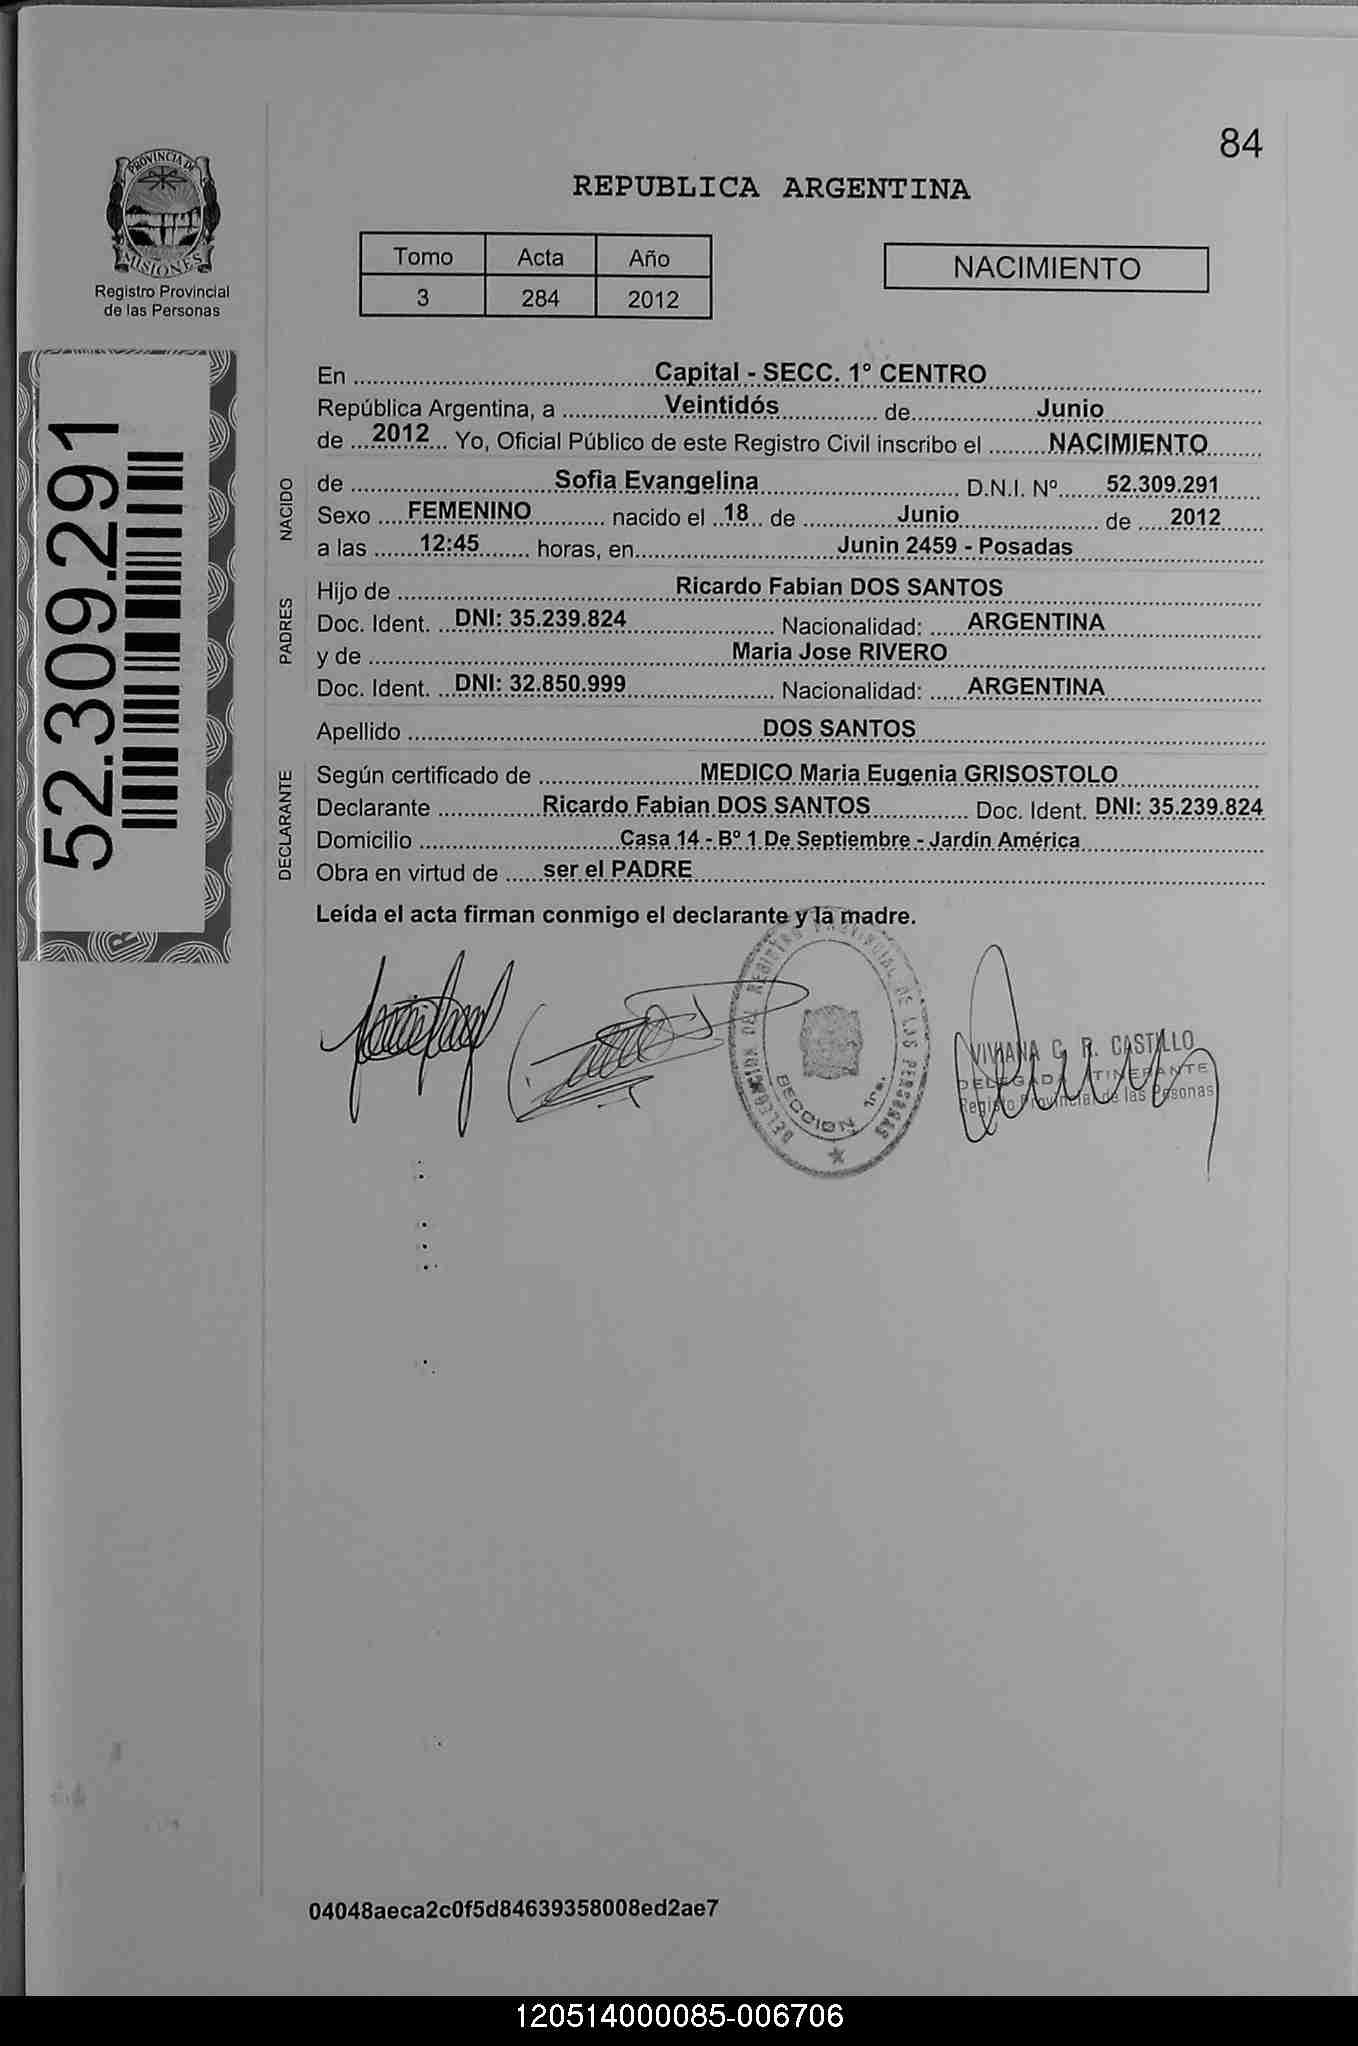 84
PROVINCIA DE
MISIONES
Registro Provincial
de las Personas
REPUBLICA ARGENTINA
Tomo Acta Año
3 284 2012
NACIMIENTO
52.309.291
En Capital - SECC. 1° CENTRO
República Argentina, a Veintidós de Junio
de 2012 Yo, Oficial Público de este Registro Civil inscribo el NACIMIENTO
NACIDO
de Sofia Evangelina D.N.I. Nº 52.309.291
Sexo FEMENINO nacido el 18 de Junio de 2012
a las 12:45 horas, en Junin 2459 - Posadas
PADRES
Hijo de Ricardo Fabian DOS SANTOS
Doc. Ident. DNI: 35.239.824 Nacionalidad: ARGENTINA
y de Maria Jose RIVERO
Doc. Ident. DNI: 32.850.999 Nacionalidad: ARGENTINA
Apellido DOS SANTOS
DECLARANTE
Según certificado de MEDICO Maria Eugenia GRISOSTOLO
Declarante Ricardo Fabian DOS SANTOS Doc. Ident. DNI: 35.239.824
Domicilio Casa 14 - Bº 1 De Septiembre - Jardín América
Obra en virtud de ser el PADRE
Leída el acta firman conmigo el declarante y la madre.
DELEGACION DEL REGISTRO PROVINCIAL DE LAS PERSONAS
SECCION 1ra.
VIVIANA C. R. CASTILLO
DELEGADA ITINERANTE
Registo Provincial de las Pesonas
04048aeca2c0f5d84639358008ed2ae7
120514000085-006706